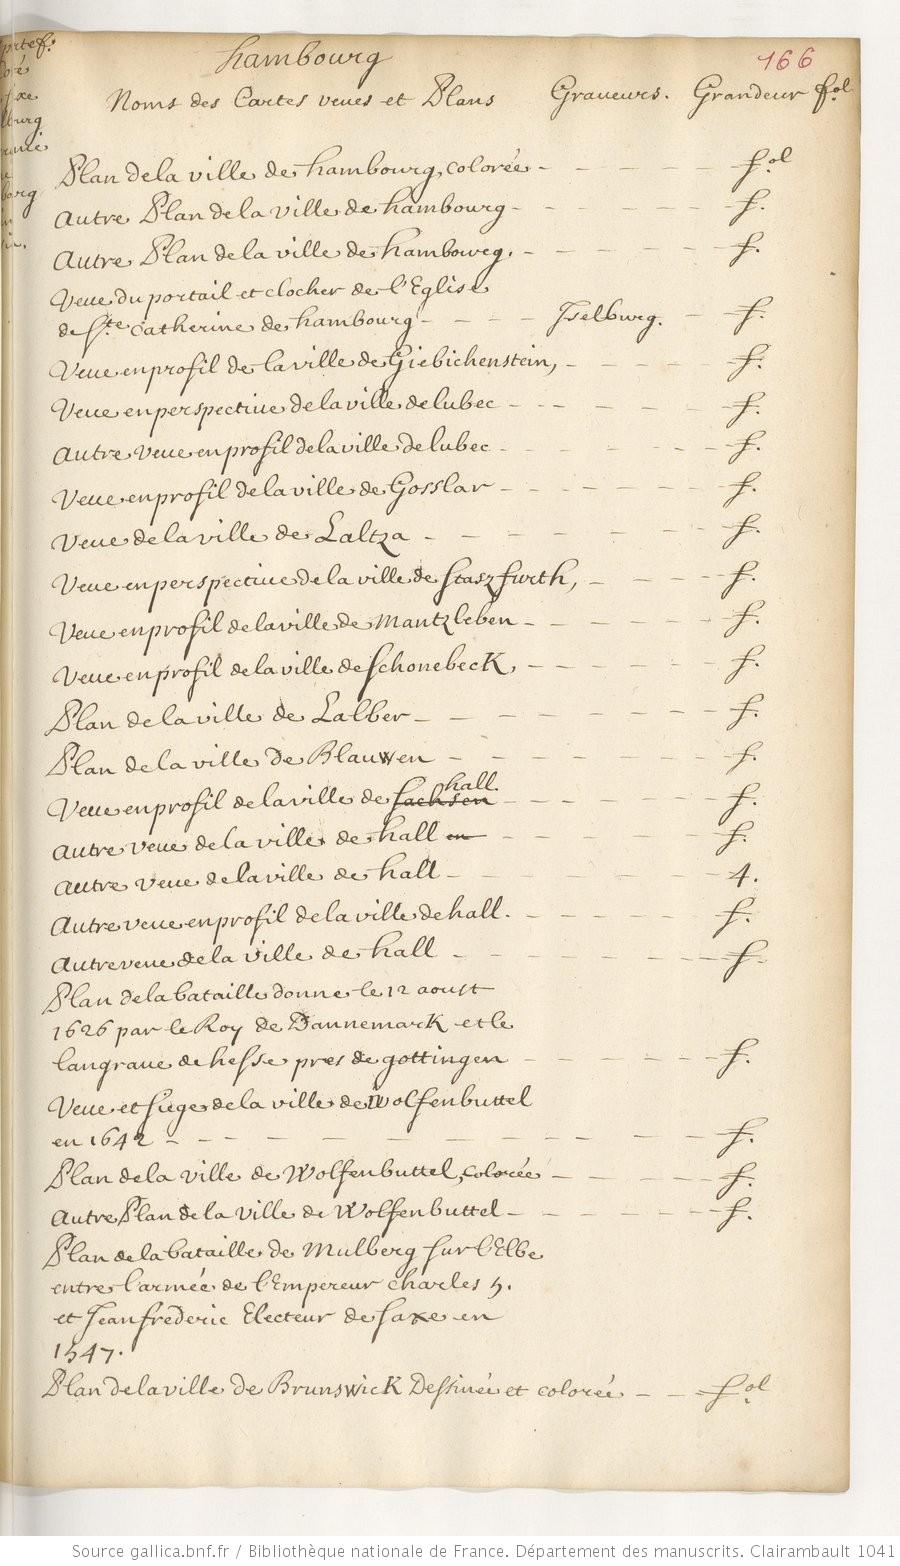 hambourg
166
Noms des Cartes veues et Plans Graueurs. Grandeur fol
Plan de la ville de hambourg, colorée - - - - - fol
autre Plan de la ville de hambourg - - - - - f.
autre Plan de la ville de hambourg. - - - - - f.
Veue du portail et clocher de l'Eglise
de Ste Catherine de hambourg - - - - Iselburg. - f.
Veue en profil de la ville de Giebichenstein, - - - - f.
Veue en perspectiue de la ville de lubec - - - - - - f.
autre veue en profil de la ville de lubec - - - - - f.
Veue en profil de la ville de Gosslar - - - - - - f.
Veue de la ville de Laltza - - - - - - - f.
Veue en perspectiue de la ville de staszfurth, - - - - f.
Veue en profil de la ville de Mantzleben - - - - - f.
Veue en profil de la ville de schonebecK, - - - - - f.
Plan de la ville de Lalber - - - - - - - f.
Plan de la ville de Blauwen - - - - - - f.
Veue en profil de la ville de sachsen hall. - - - - - f.
autre veue de la ville de hall en - - - - - - f.
autre veue de la ville de hall - - - - - - - 4.
Autre veue en profil de la ville de hall. - - - - - f.
autre veue de la ville de hall - - - - - - - f.
Plan de la bataille donne le 12 aoust
1626 par le Roy de DannemarcK et le
langraue de hesse pres de gottingen - - - - - f.
Veue et siege de la ville de Wolfenbuttel
en 1642 - - - - - - - - - - f.
Plan de la ville de Wolfenbuttel, colorée - - - - f.
autre Plan de la ville de Wolfenbuttel - - - - - f.
Plan de la bataille de Mulberg sur l'Elbe
entre l'armée de l'Empereur charles 5.
et Jean frederic Electeur de saxe en
1547.
Plan de la ville de BrunswicK Dessinée et colorée - - fol
Source gallica.bnf.fr / Bibliothèque nationale de France. Département des manuscrits. Clairambault 1041